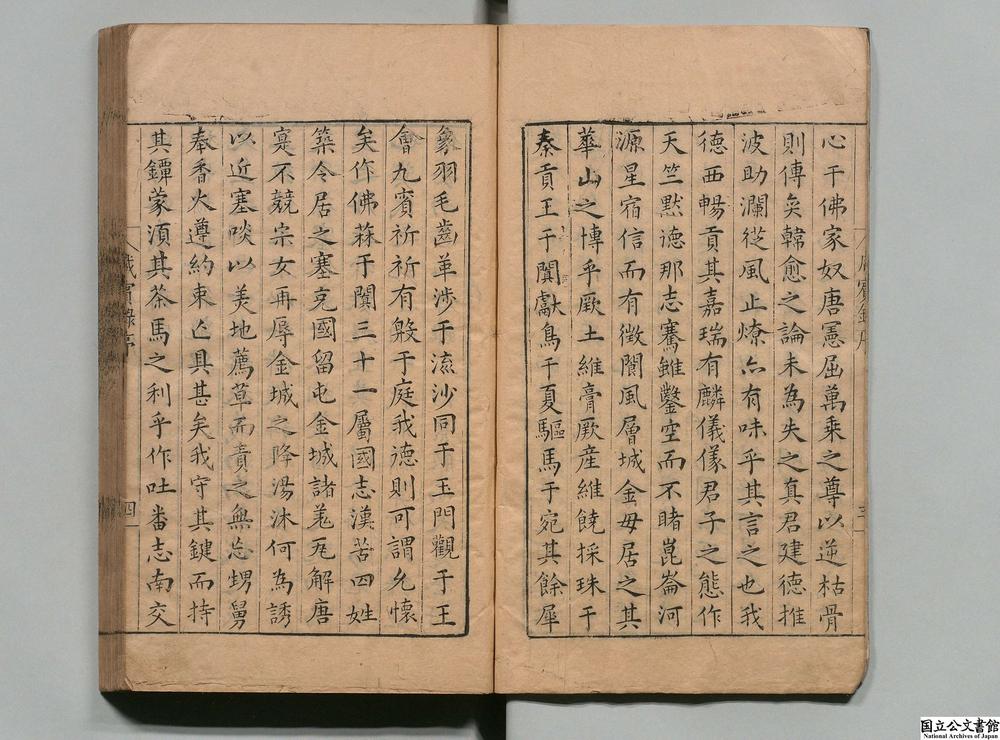 心干佛家奴唐憲屈萬乘之尊以逆枯骨
則傳奕韓愈之論未為失之真君建德推
波助瀾從風止燎亦有味乎其言之也我
德西暢貢其嘉瑞有麟儀儀君子之態作
天竺默德那志騫雖鑿空而不睹崑崙河
源星宿信而有徵閬風層城金母居之其
華山之博乎厥土維膏厥産維饒採珠于
秦貢王于闐獻鳥于夏驅馬于宛其餘犀
象羽毛齒革渉于流沙同于玉門觀于王
會九賓祈祈有殽于庭我德則可謂允懷
矣作佛菻于闐三十一屬國志漢苦四姓
築令居之塞克國留屯金城諸羌瓦解唐
寔不競宗女再辱金城之降湯沐何為誘
以近塞啖以美地薦草而責之無忘甥舅
奉香火遵約束亡具甚矣我守其鍵而持
其鐔蒙湏其茶馬之利乎作吐番志南交
賓錄序
三
咸賓錄序
四
国立公文書館
National Archives of Japan